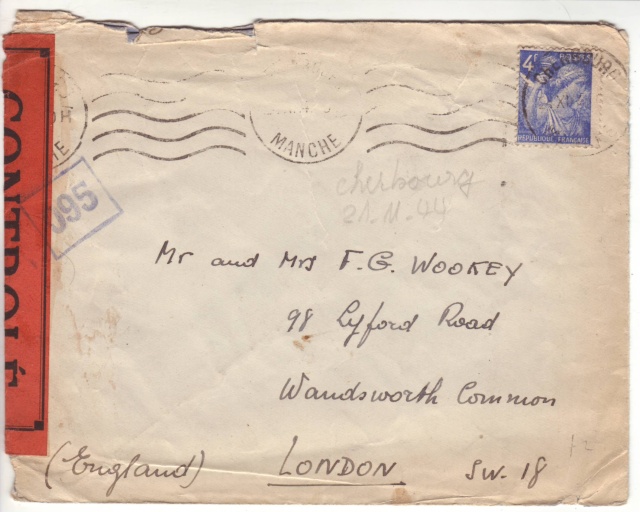 CONTROLÉ
095
MANCHE
CHERBOURG
4F
REPUBLIQUE FRANÇAISE
cherbourg
21.11.44
Mr and Mrs F.G. WOOKEY
98 Lyford Road
Wandsworth Common
(England) LONDON SW. 18